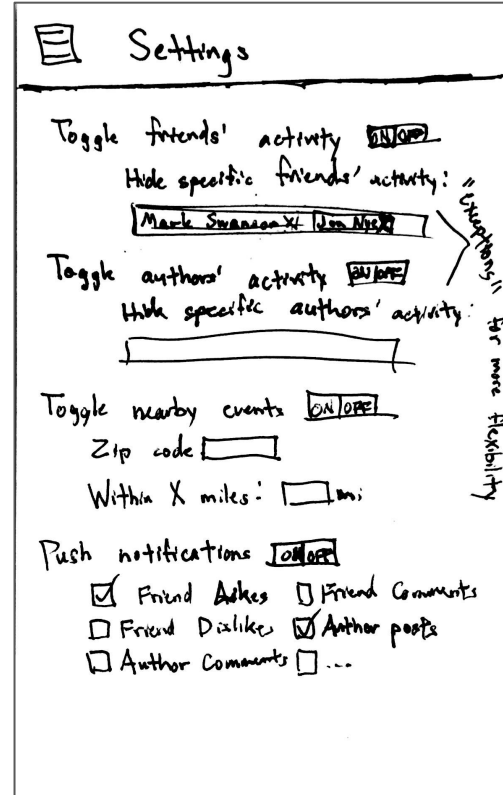 Settings
Toggle friends' activity ON OFF
Hide specific friends' activity:
Mark Swanson X Jon Nye X
Toggle authors' activity ON OFF
Hide specific authors' activity:
"exceptions" for more flexibility
Toggle nearby events ON OFF
Zip code
Within X miles: mi
Push notifications ON OFF
Friend Likes Friend Comments
Friend Dislikes Author posts
Author Comments ...